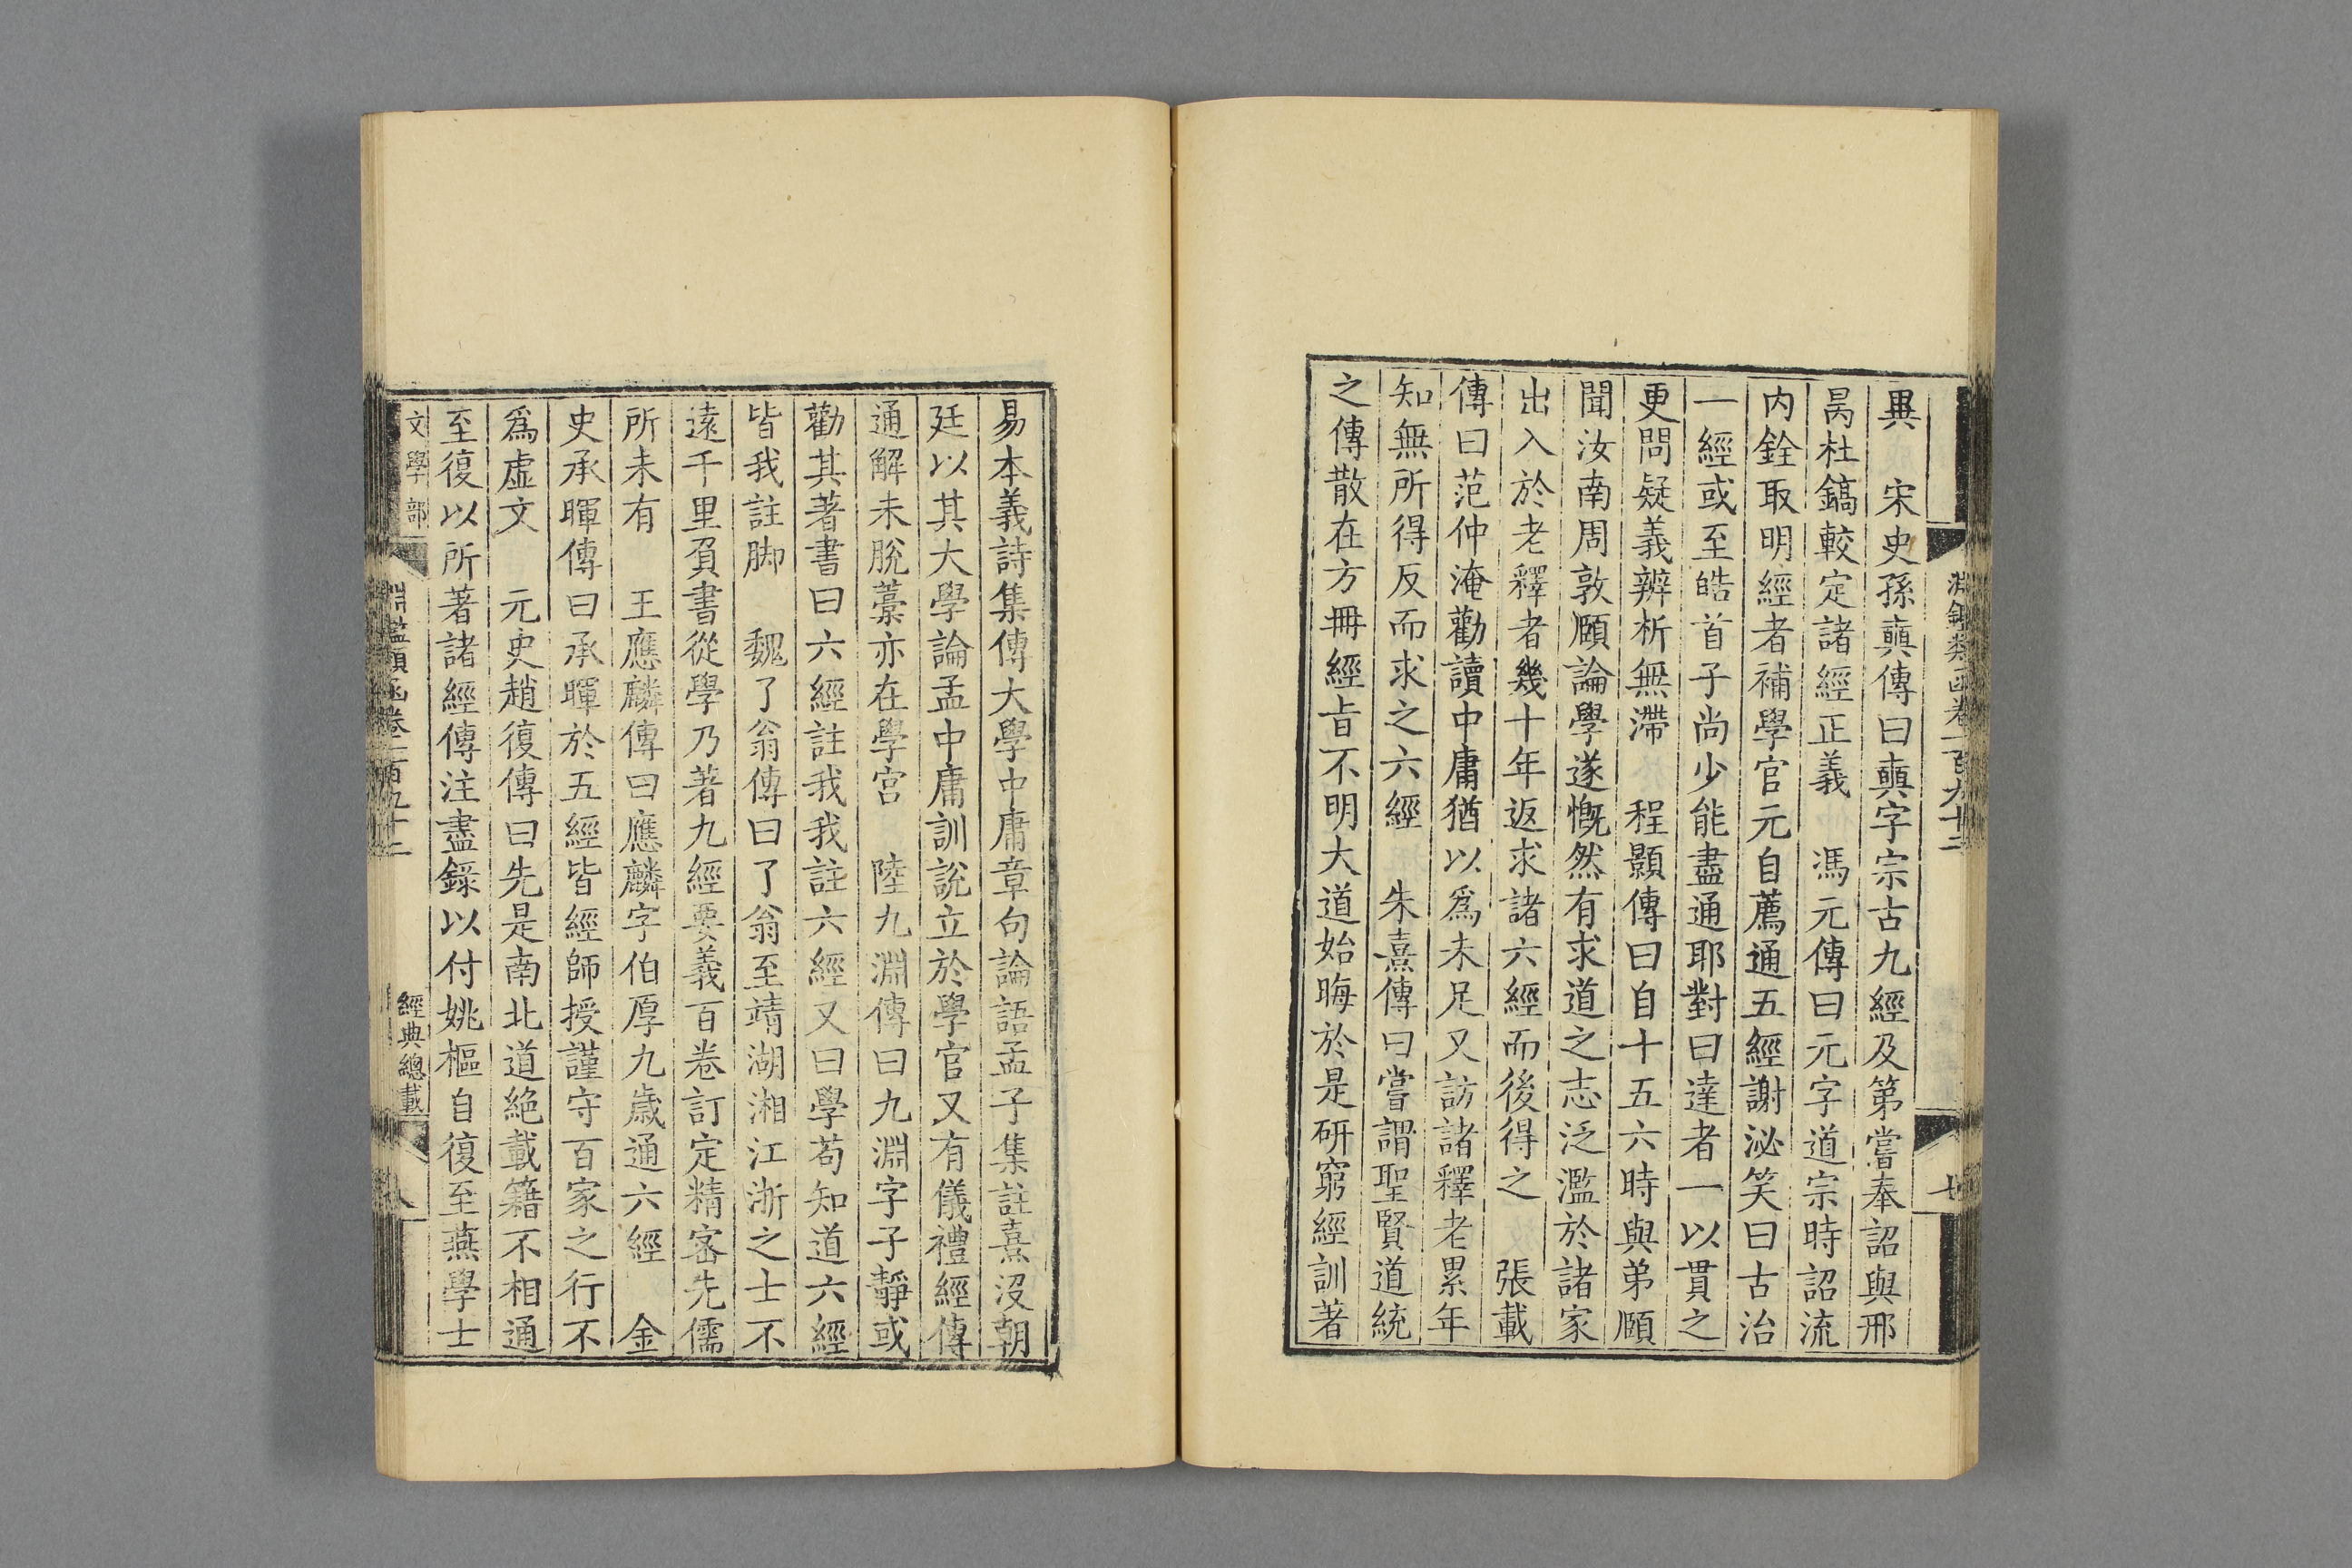 異　宋史孫奭傳曰奭字宗古九經及第嘗奉詔與邢
昺杜鎬較定諸經正義　馮元傳曰元字道宗時詔流
內銓取明經者補學官元自薦通五經謝泌笑曰古治
一經或至皓首子尚少能盡通耶對曰達者一以貫之
更問疑義辨析無滯　程顥傳曰自十五六時與弟頤
聞汝南周敦頤論學遂慨然有求道之志泛濫於諸家
出入於老釋者幾十年返求諸六經而後得之　張載
傳曰范仲淹勸讀中庸猶以爲未足又訪諸釋老累年
知無所得反而求之六經　朱熹傳曰嘗謂聖賢道統
之傳散在方冊經旨不明大道始晦於是研窮經訓著
易本義詩集傳大學中庸章句論語孟子集註熹沒朝
廷以其大學論孟中庸訓說立於學官又有儀禮經傳
通解未脫藁亦在學宮　陸九淵傳曰九淵字子靜或
勸其著書曰六經註我我註六經又曰學苟知道六經
皆我註脚　魏了翁傳曰了翁至靖湖湘江浙之士不
遠千里負書從學乃著九經要義百卷訂定精密先儒
所未有　王應麟傳曰應麟字伯厚九歲通六經　金
史承暉傳曰承暉於五經皆經師授謹守百家之行不
爲虛文　元史趙復傳曰先是南北道絕載籍不相通
至復以所著諸經傳注盡錄以付姚樞自復至燕學士
文學部　淵鑑類函卷一百九十二　經典總載　八